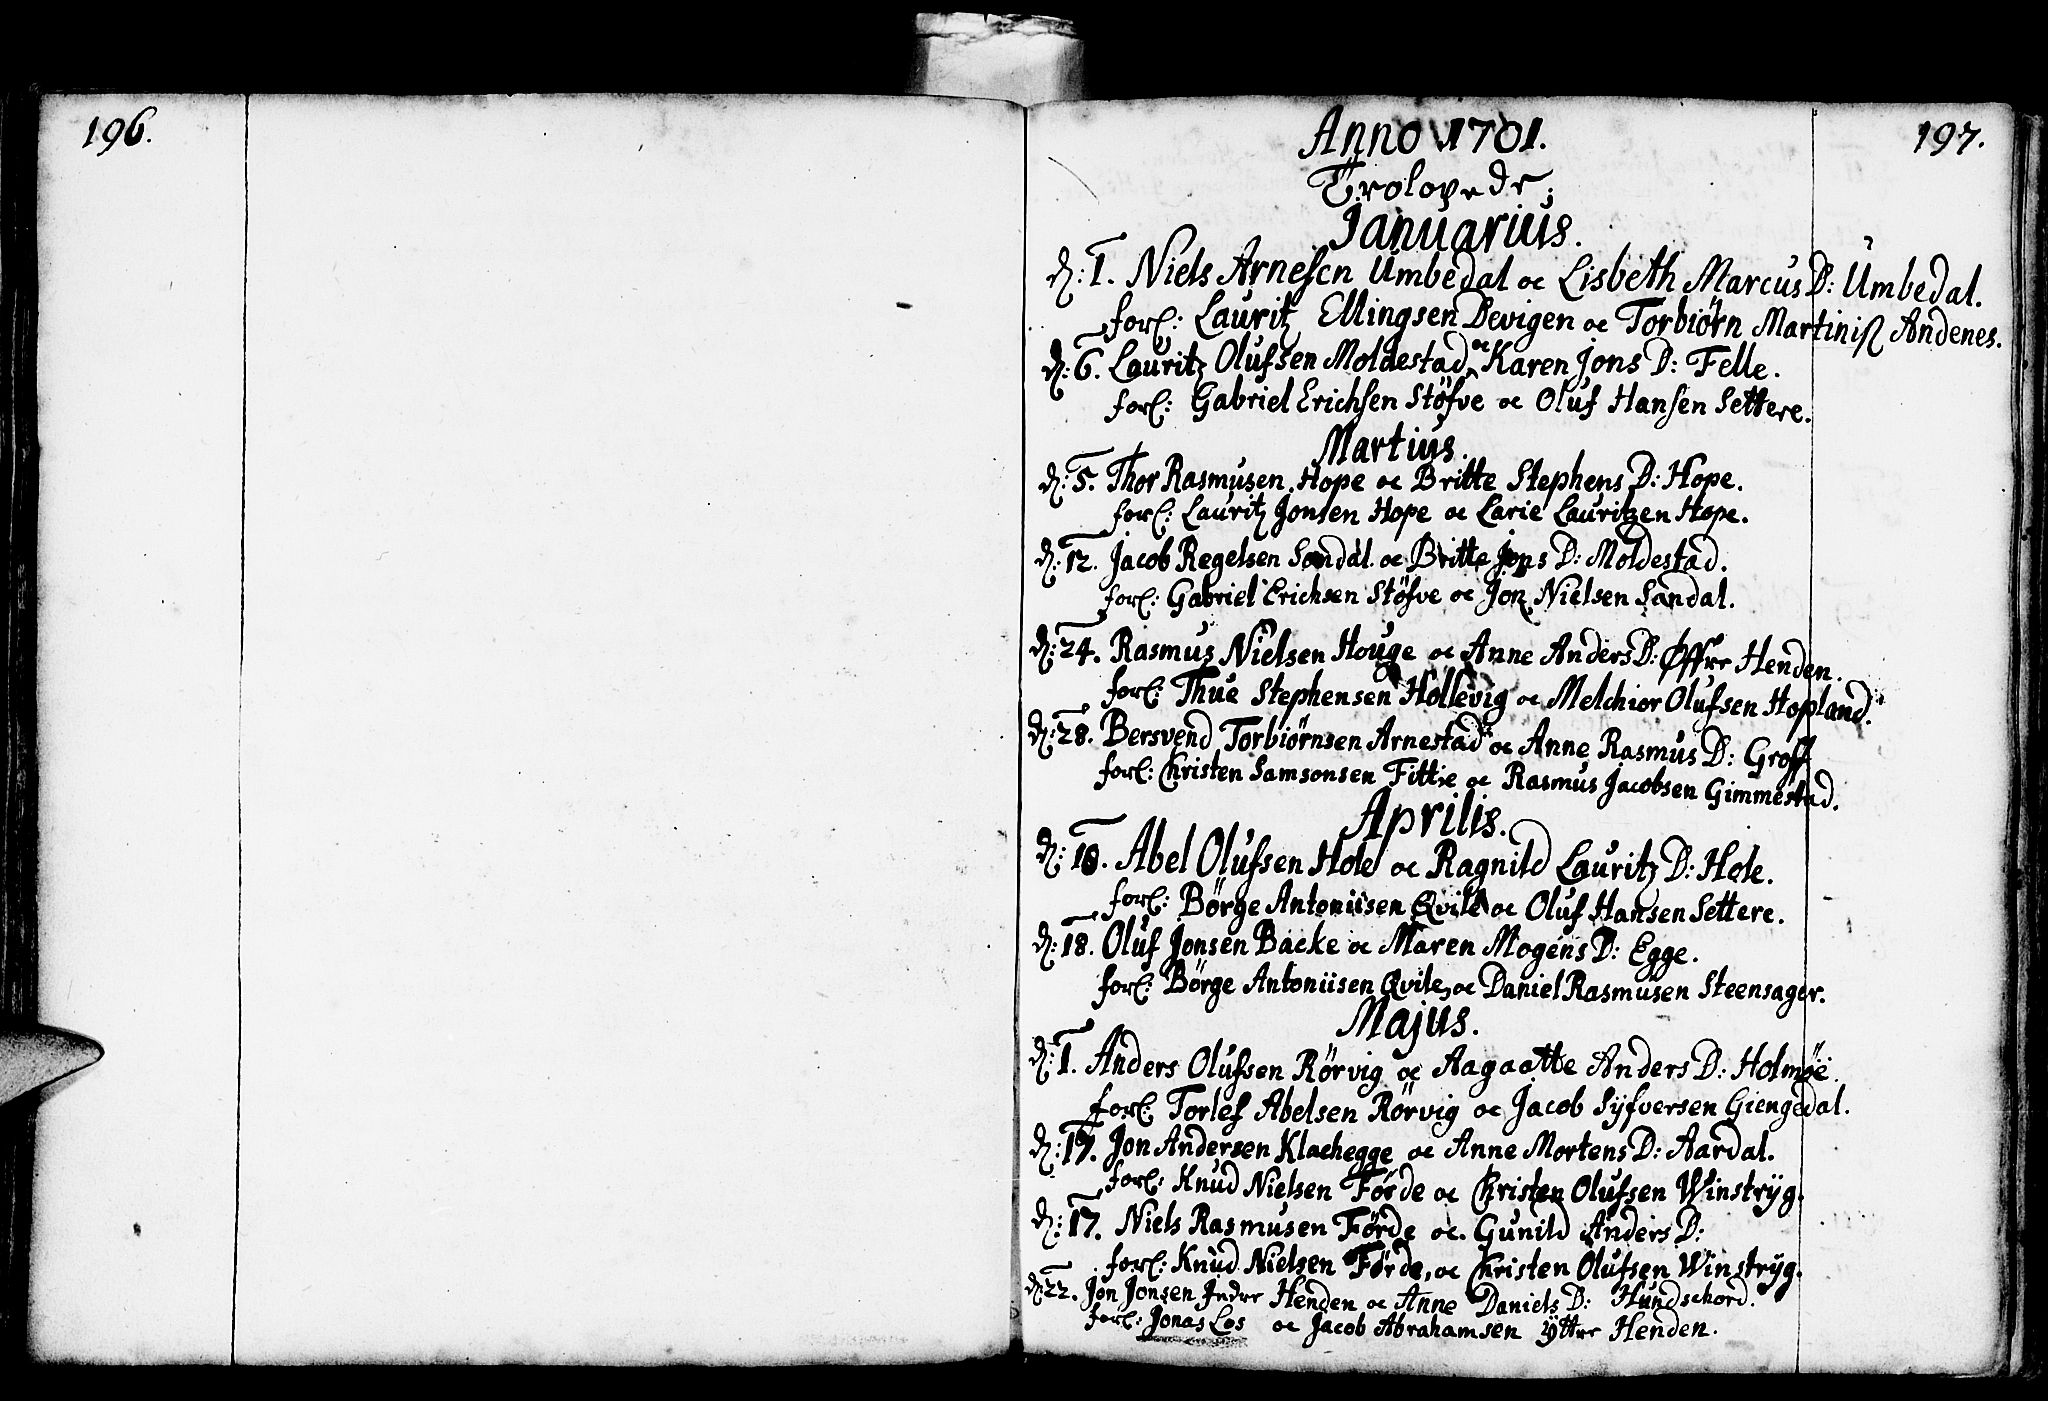 196.
197.
Anno 1701.
Trolovede.
Januarius.
d: 1. Niels Arnesen Umbedal oc Lisbeth Marcus D: Umbedal.
forl: Lauritz Ellingsen Devigen oc Torbiørn Martiniß Andenes.
d: 6. Lauritz Olufsen Moldestad oc Karen Jons D: Felle.
forl: Gabriel Erichsen Støfve oc Oluf Hansen Settere.
Martius.
d: 5. Thor Rasmusen Hope oc Britte Stephens D: Hope.
forl: Lauritz Jonsen Hope oc Larie Lauritzen Hope.
d: 12. Jacob Regelsen Sandal oc Britte Jons D: Moldestad.
forl: Gabriel Erichsen Støfve oc Jon Nielsen Sandal.
d: 24. Rasmus Nielsen Houge oc Anne Anders D: Øffre Henden.
forl: Thue Stephensen Hollevig oc Melchior Olufsen Hopland.
d: 28. Bersvend Torbiørnsen Arnestad oc Anne Rasmus D: Groff
forl: Christen Samsonsen Fittie oc Rasmus Jacobsen Gimmestad.
Aprilis.
d: 10. Abel Olufsen Hole oc Ragnild Lauritz D: Hole.
forl: Børge Antoniisen Qvile oc Oluf Hansen Settere.
d: 18. Oluf Jonsen Backe oc Maren Mogens D: Egge.
forl: Børge Antoniisen Qvile, oc Daniel Rasmusen Steensager.
Majus.
d: 1. Anders Olufsen Rørvig oc Aagaatte Anders D: Holmøi.
forl: Torlef Abelsen Rørvig oc Jacob Syfversen Giengedal.
d: 17. Jon Andersen Klachegge oc Anne Mortens D: Aardal.
forl: Knud Nielsen Førde oc Christen Olufsen Winstryg.
d: 17. Niels Rasmusen Førde oc. Gunild Anders D:
forl: Knud Nielsen Førde, oc Christen Olufsen Winstryg.
d: 22. Jon Jonsen Indre Henden oc Anne Daniels D: Hundschord.
forl: Jonas Los oc Jacob Abrahamsen Yttre Henden.